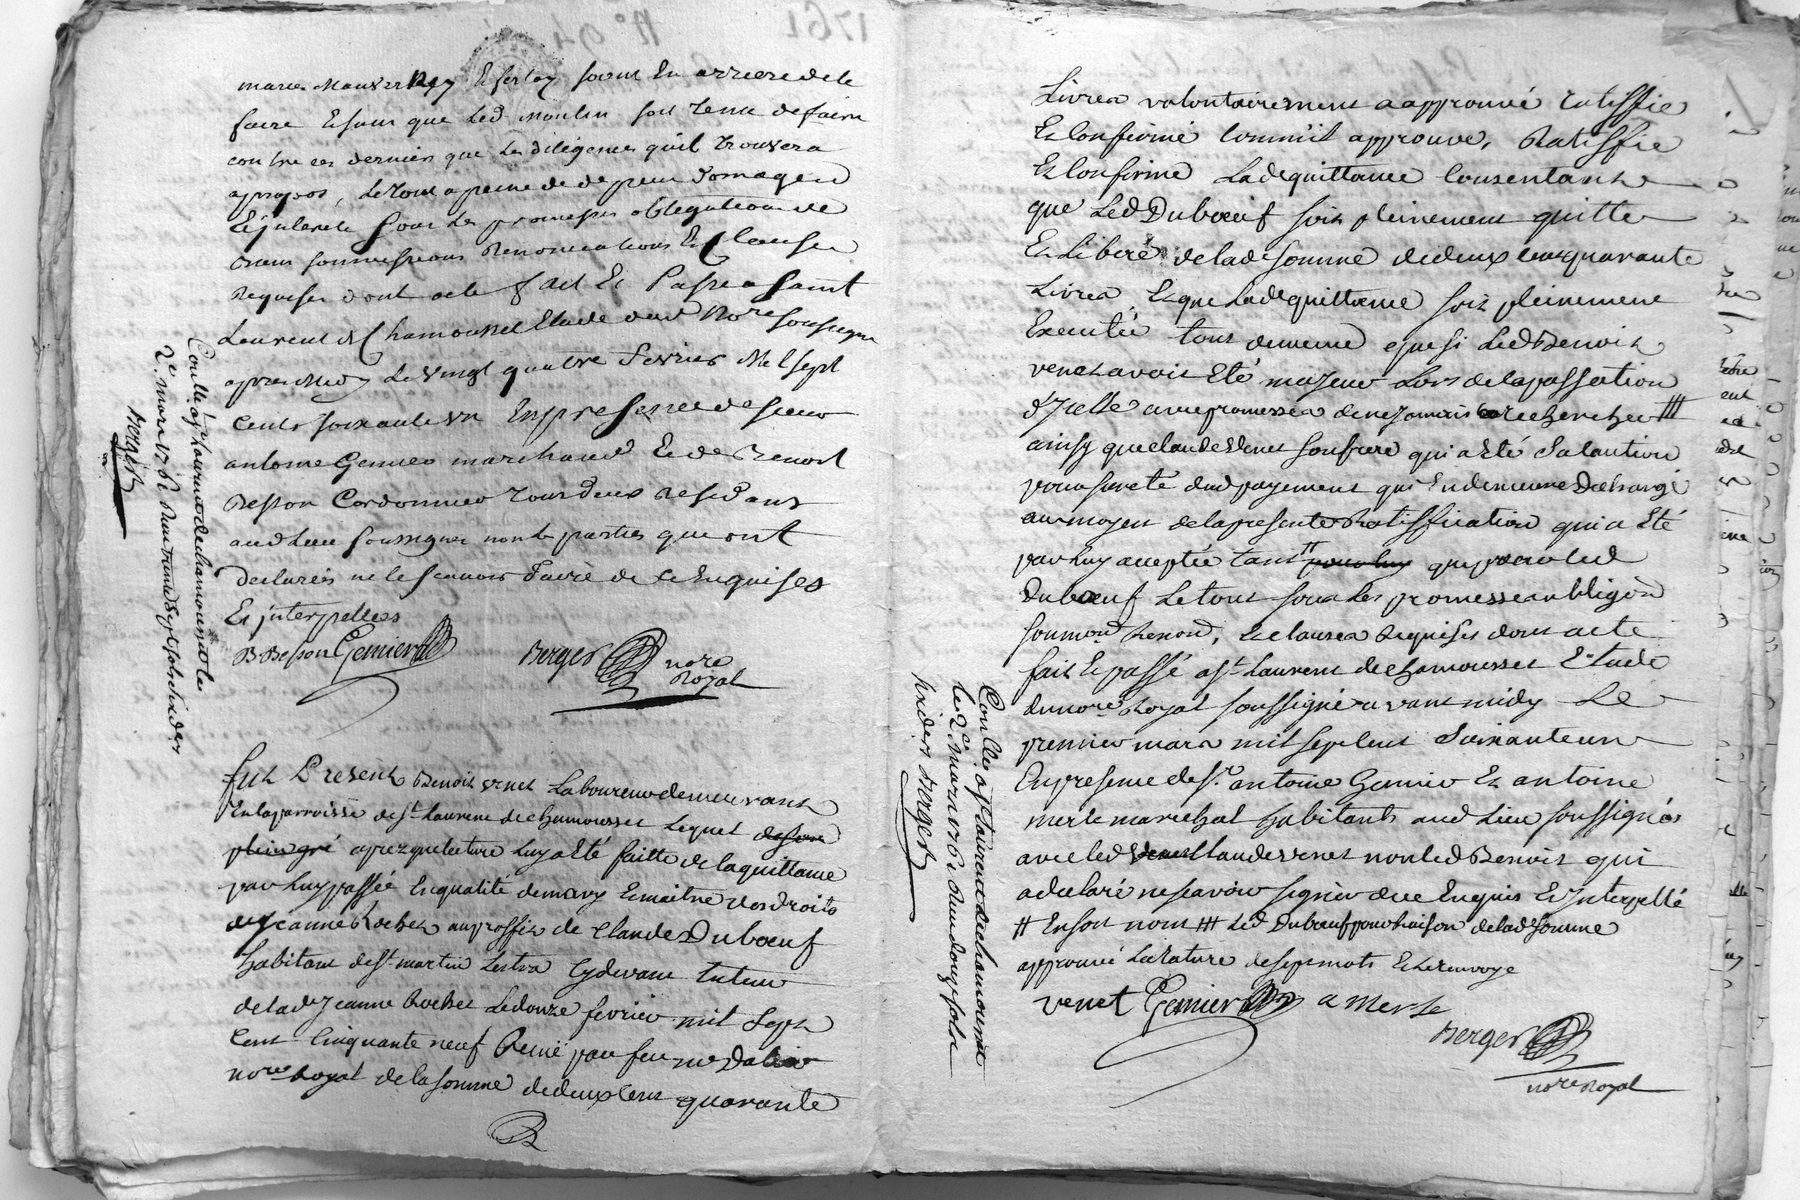 1761
N° 94
marie Mauvernay Et sertoy soeur En arriere de le
faire Et sans que Led. moulin soit Tenu de faire
contre ces derniers que Les diligences qu'il Trouvera
apropos, Le Tout a peine de depens Domages
Et jnterets sous Les promesses obligations de
biens soumissions Renonciations Et Clauses
Requises dont acte fait Et Passé a saint
Laurent de Chamousset Etude dud Nore soussigné
apres Midy Le vingt quatre fevrier Mil sept
Cents soixante un En presence de sieur
antoine Gemier marchand Et de Benoit
Besson Cordonnier Tous deux Residants
aud Lieu soussignes non les parties qui ont
declarées ne le scavoir faire de ce Enquises
Et jnterpellees
B Besson Gemier Berger nore Royal
Conllé a st Laurent de chamousset le
2e. mars 1761 Recu trente sept sols six ders
Berger
fut Present Benoit venet Laboureur demeurant
En la parroisse de st Laurent de chamousset Lequel de son
plein gré apres que lecture Luy a Eté faitte de la quittance
par Luy passée En qualité de mary Et maitre des droits
de jeanne Rochet au proffit de Claude Duboeuf
habitant de st martin Lestra Cy devant tuteur
de lad. jeanne Rochet Le douze fevrier mil sept
Cent Cinquante neuf Reçue par feu me
nore Royal de la somme de deux Cent quarante
Livres volontairement a approuvé ratiffie
Et Confirmé comm'il approuve, Ratiffie
Et Confirme Lad quittance Consentant
que Led Duboeuf soit pleinement quitte
Et Liberé de lad somme de deux Cent quarante
Livres, Et que Lad quittance soit pleinement
Executée tout de meme que si Led Benoit
venet avoit Eté majeur Lors de la passation
d'Jcelle avec promesses de ne jamais rechercher #
ainsy que claude venet son frere qui a Eté sa caution
pour sureté dud payement qui En demeure Dechargé
au moyen de la presente Ratiffication qui a Eté
par Luy acceptée tant # pour luy que pour led
Duboeuf Le tout sous Les promesses obligaons
soumons Renons, Et clauses Requises dont acte
fait Et passé a st. Laurent de chamousset Etude
du nore. Royal soussigné avant midy Le
premier mars mil sept cent soixante un
En presence de sr. antoine Gemier Et antoine
merle marechal habitants aud Lieu soussignés
avec led venet Claude venet non led Benoit qui
a declaré ne scavoir signer de ce Enquis Et Jnterpellé
# En son nom # Led Duboeuf pour Raison de lad somme
approuvé La rature de sept mots Et le renvoye
venet Gemier a Merle
Berger
nore Royal
Conllé a st Laurent de chamousset
Le 2e. mars 1761 Recu douze sols
six ders Berger